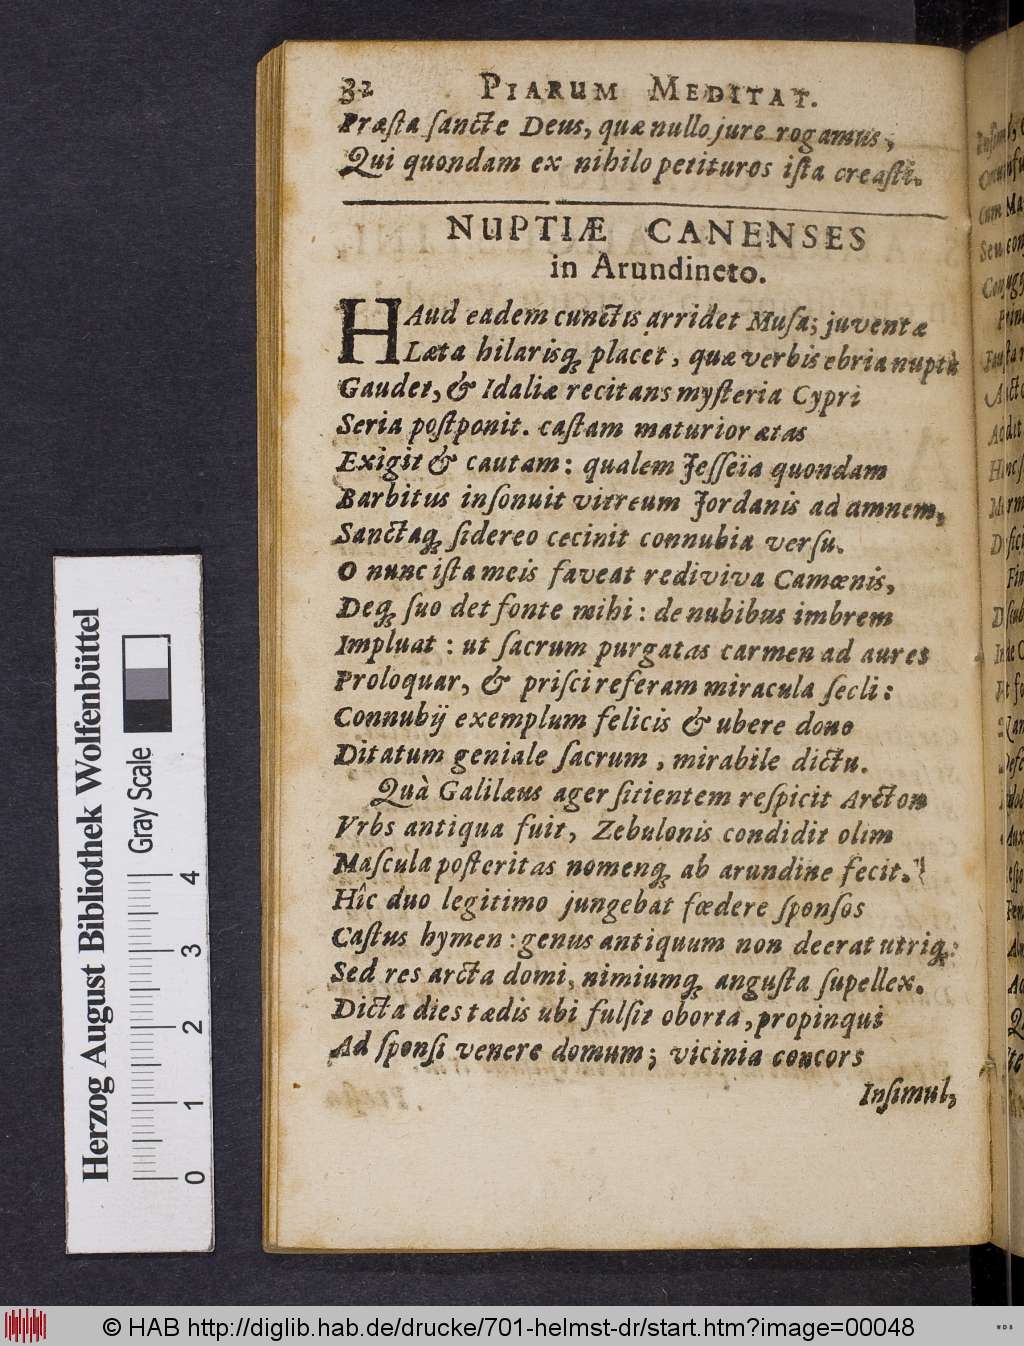 32 PIARUM MEDITAT.
Præſta ſancte Deus, quæ nullo jure rogamus,
Qui quondam ex nihilo petituros iſta creaſti.
NUPTIÆ CANENSES
in Arundineto.
HAud eadem cunctis arridet Muſa; juventæ
Læta hilarisq; placet, quæ verbis ebria nuptâ
Gaudet, & Idaliæ recitans myſteria Cypri
Seria poſtponit. caſtam maturior ætas
Exigit & cautam: qualem Jeſſeïa quondam
Barbitus inſonuit vitreum Jordanis ad amnem,
Sanctaq; ſidereo cecinit connubia verſu.
O nunc iſta meis faveat rediviva Camœnis,
Deq; ſuo det fonte mihi: de nubibus imbrem
Impluat: ut ſacrum purgatas carmen ad aures
Proloquar, & priſci referam miracula ſecli:
Connubij exemplum felicis & ubere dono
Ditatum geniale ſacrum, mirabile dictu.
Quà Galilæus ager ſitientem reſpicit Arcton
Vrbs antiqua fuit, Zebulonis condidit olim
Maſcula poſteritas nomenq; ab arundine fecit.
Hîc duo legitimo jungebat fœdere ſponſos
Caſtus hymen: genus antiquum non deerat utriq;:
Sed res arcta domi, nimiumq; anguſta ſupellex.
Dicta dies tædis ubi fulſit oborta, propinqui
Ad ſponſi venere domum; vicinia concors
Inſimul,
Herzog August Bibliothek Wolfenbüttel
Gray Scale
0 1 2 3 4
© HAB http://diglib.hab.de/drucke/701-helmst-dr/start.htm?image=00048